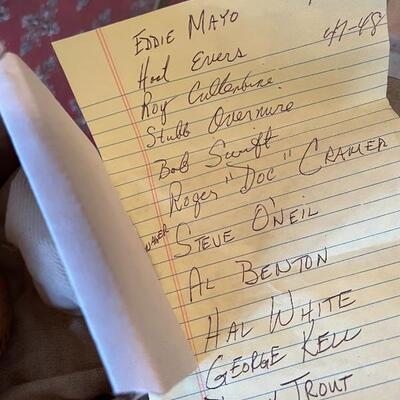 EDDIE MAYO
47-48
Hoot Evers
Roy Cullenbine
Stubb Overmire
Bob Swift
Roger "Doc" CRAMER
STEVE O'NEIL
AL BENTON
HAL WHITE
GEORGE KELL
TROUT